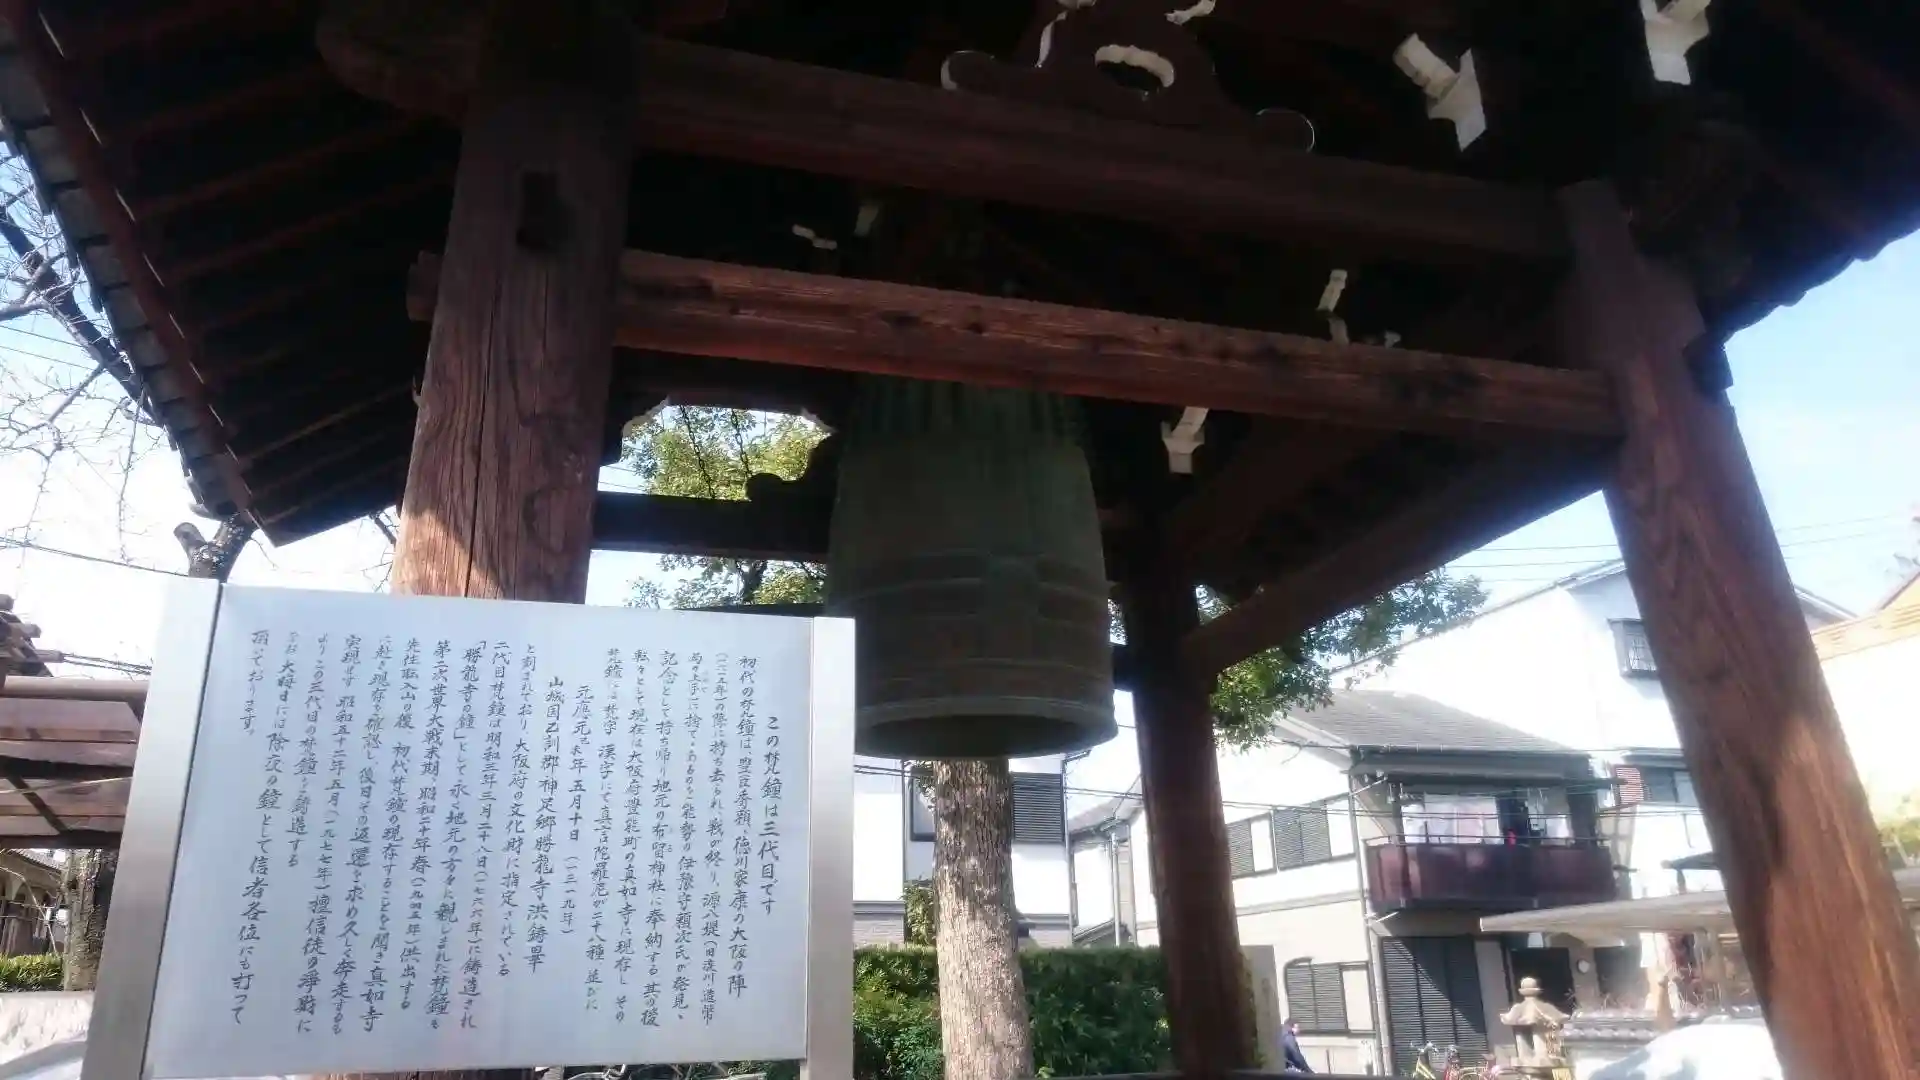 この梵鐘は三代目です
初代の梵鐘は、豊臣秀頼、徳川家康の大阪の陣
(一六一五年)の陣に持ち去られ、戦が終り、源八堤(旧淀川造幣
局の上手)に捨てゝあるのを、能勢の伊豫守頼次氏が発見、
記念として持ち帰り地元の布留神社に奉納する其の後
転々として現在は大阪府豊能町の真如寺に現存し その
梵鐘には梵字 漢字にて真言陀羅尼が二十八種 並びに
元應元己未年五月十日 (一三一九年)
山城国乙訓郡神足郷勝龍寺洪鋳畢
と刻まれており、大阪府の文化財に指定されている
二代目梵鐘は明和三年三月二十八日(一七六六年)に鋳造され
「勝龍寺の鐘」として永く地元の方々に親しまれた梵鐘も
第二次世界大戦末期、昭和二十年春(一九四五年)供出する
先住職入山の後 初代梵鐘の現存することを聞き真如寺
に赴き現存を確認し、後日その返還を求め久しく奔走するも
実現せず 昭和五十二年五月(一九七七年)檀信徒の浄財に
よりこの三代目の梵鐘を鋳造する
なお 大晦日には除夜の鐘として信者各位にも打って
頂いております。